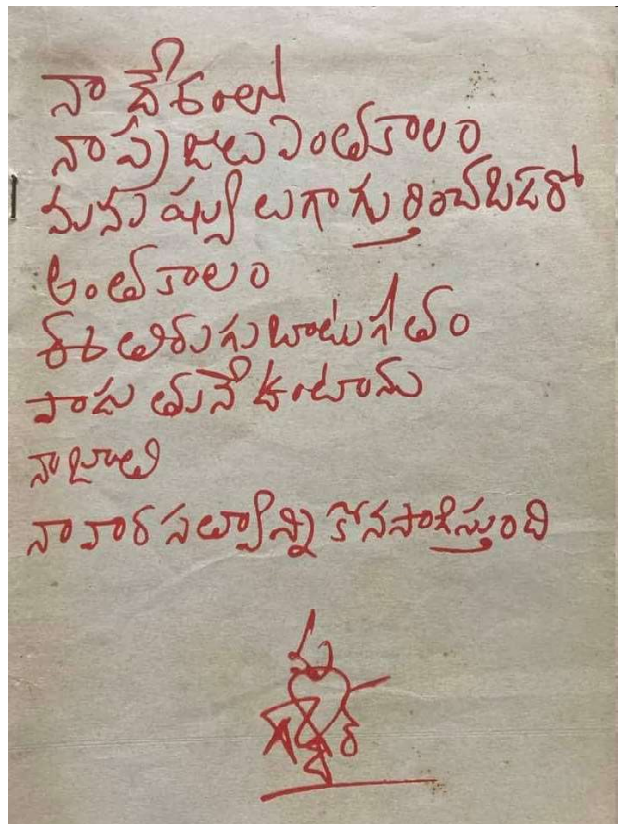 నా దేశంలో
నా ప్రజలు ఎంతకాలం
మనుష్యులుగా గుర్తించబడరో
అంతకాలం
ఈ తిరుగుబాటు గీతం
పాడుతునే ఉంటాను
నా జాతి
నా వారసత్వాన్ని కోనసాగిస్తుంది
మీ
గద్దర్